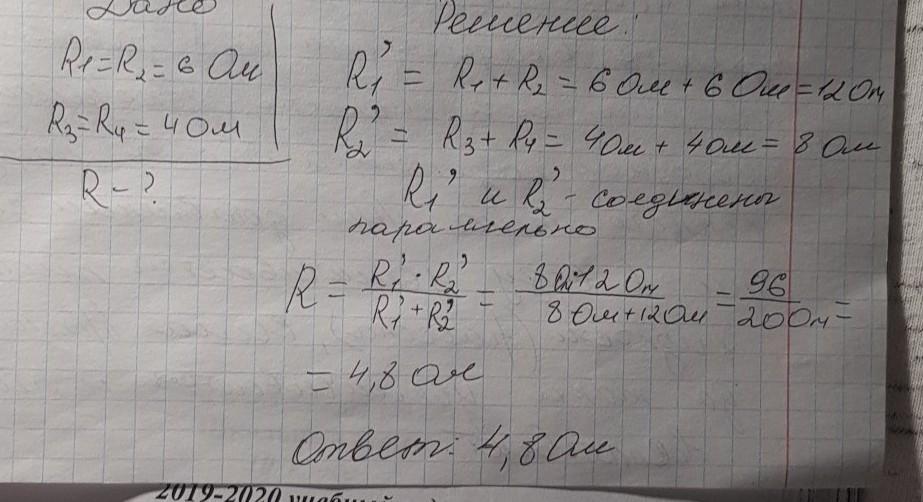 Дано
R1=R2=6 Ом
R3=R4=4 Ом
R-?
Решение:
R1' = R1+R2 = 6 Ом + 6 Ом = 12 Ом
R2' = R3+R4 = 4 Ом + 4 Ом = 8 Ом
R1' и R2' - соединены
параллельно
R = R1'·R2' / R1'+R2' = 8 Ом·12 Ом / 8 Ом+12 Ом = 96 / 20 Ом =
= 4,8 Ом
Ответ: 4,8 Ом
2019-2020